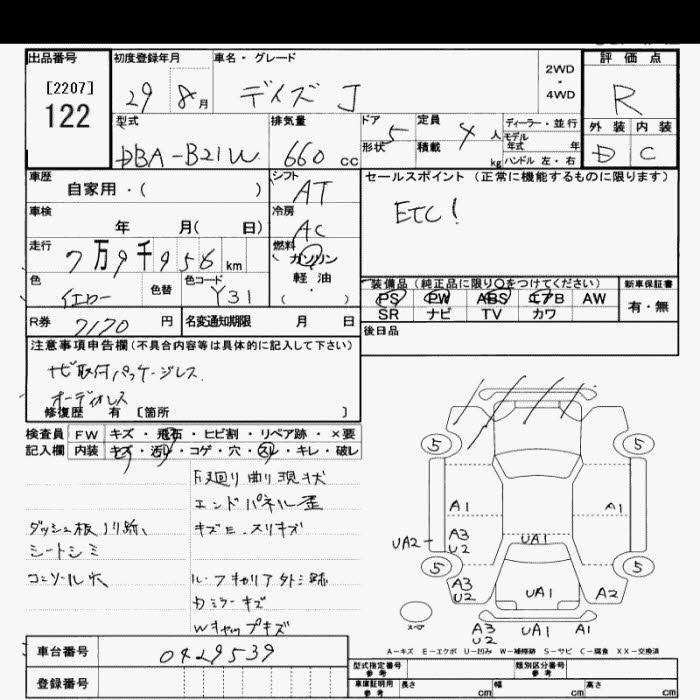 出品番号
[2207]
122
初度登録年月
29 8月
車名・グレード
デイズ J
2WD
・
4WD
評価点
R
外装 内装
D C
型式
DBA-B21W
排気量
660 cc
ドア 5
形状
定員 4 人
積載 kg
ディーラー・並行
モデル
年式 年
ハンドル 左・右
車歴
自家用・( )
シフト
AT
セールスポイント(正常に機能するものに限ります)
ETC!
車検
年 月( 日)
冷房
AC
走行
7万9千956km
燃料
ガソリン
・
軽油
( )
色
イエロー
色替
色コード
Y31
装備品(純正品に限り○をつけてください)
PS PW ABS エアB AW
SR ナビ TV カワ
新車保証書
有・無
R券 7170 円
名変通知期限 月 日
後日品
注意事項申告欄(不具合内容等は具体的に記入して下さい)
ナビ取付パッケージレス
オーディオレス
修復歴 有 [箇所 ]
検査員 FW キズ・飛石・ヒビ割・リペア跡・×要
記入欄 内装 キズ・汚れ・コゲ・穴・スレ・キレ・破レ
下廻り曲り現状
エンドパネル歪
ダッシュ板ノリ跡、
キズE、スリキズ
シートシミ
コンソール穴
ルーフキャリア外シ跡
Dミラーキズ
Wキャップキズ
5 5
A1 A1
UA2 A3
U2
UA1
5 5
A3
U2
UA1 A2
スペア
A3
U2
UA1 A1
A-キズ E-エクボ U-凹み W-補修跡 S-サビ C-腐食 XX-交換済
車台番号 0429539
登録番号
型式指定番号
参考
類別区分番号
参考
車庫証明用
参考
長さ cm 幅 cm 高さ cm